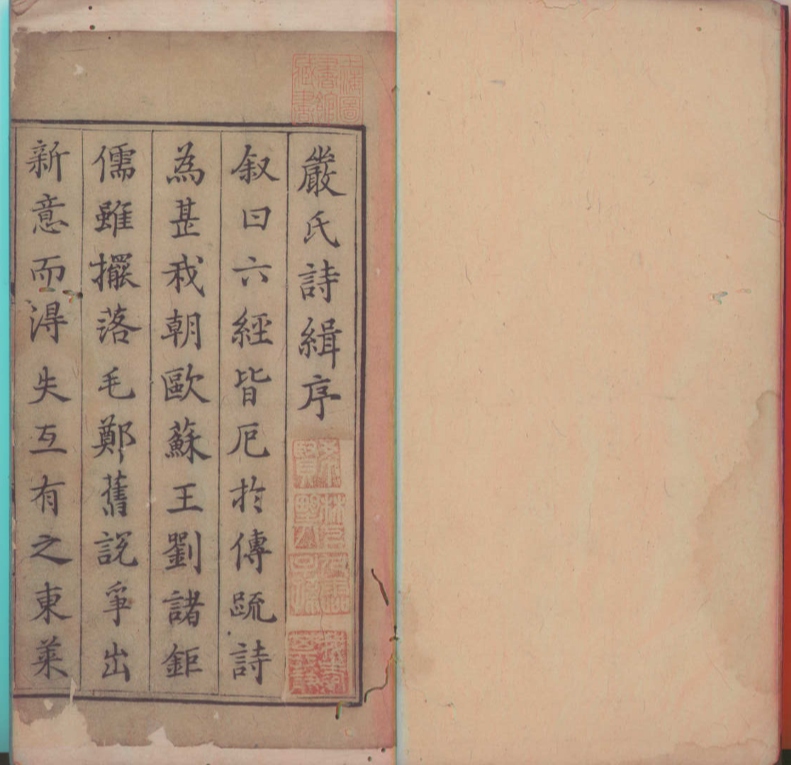 嚴氏詩緝序
叙曰六經皆厄扵傳䟽詩
為甚我朝歐蘇王劉諸鉅
儒雖擺落毛鄭舊説爭出
新意而得失互有之東萊